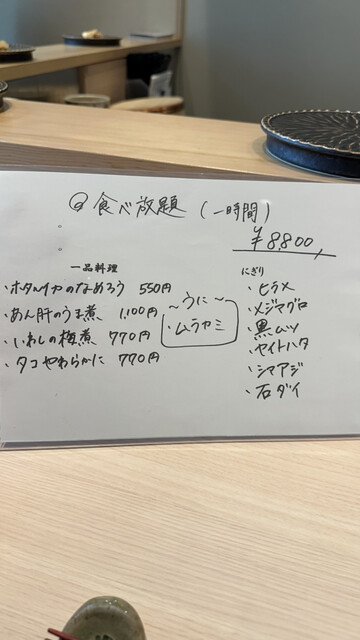 ◎食べ放題(一時間)
¥8800,
一品料理
・ホタルイカのなめろう 550円
・あん肝のうま煮 1,100円
・いわしの梅煮 770円
・タコやわらかに 770円
～うに～
・ムラカミ
にぎり
・ヒラメ
・メジマグロ
・黒ムツ
・ヤイトハタ
・シマアジ
・石ダイ